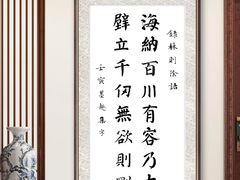 錄林則徐語
海納百川有容乃大
壁立千仞無欲則剛
壬寅墨趣集字